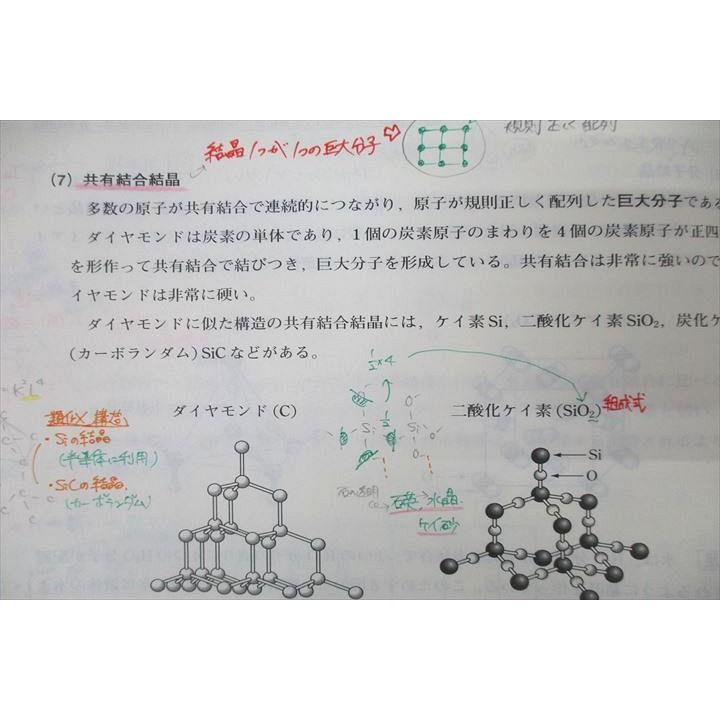 規則正しく配列
結晶1つが1つの巨大分子
(7) 共有結合結晶
多数の原子が共有結合で連続的につながり，原子が規則正しく配列した巨大分子であ
ダイヤモンドは炭素の単体であり，1個の炭素原子のまわりを4個の炭素原子が正四
を形作って共有結合で結びつき，巨大分子を形成している。共有結合は非常に強いので
イヤモンドは非常に硬い。
ダイヤモンドに似た構造の共有結合結晶には，ケイ素Si，二酸化ケイ素SiO₂，炭化ケ
(カーボランダム) SiCなどがある。
1/2×4
K²L⁴
類似×構造
ダイヤモンド (C)
二酸化ケイ素 (SiO₂)
組成式
・Siの結晶
(半導体に利用)
・SiCの結晶
(カーボランダム)
Si
O
1/2
Si
Si
石英 水晶
ケイ砂